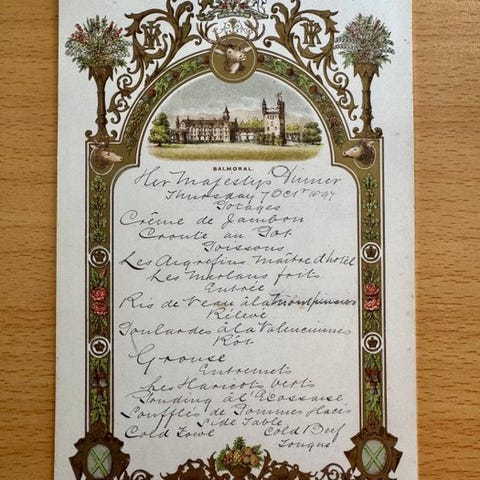 BALMORAL.
Her Majesty's Dinner
Thursday 7 Octr 1897
Potages
Crême de Jambon
Croute au Pot
Poissons
Les Aigrefins Maître d'hotel
Les Merlans frits
Entrée
Ris de Veau à la
Rélevé
Poulardes à la Valenciennes
Rôt
Grouse
Entremets
Les Haricots verts
Pouding à l'Ecossaise
Soufflés de Pommes Glacés
Side Table
Cold Fowl Cold Beef
Tongue